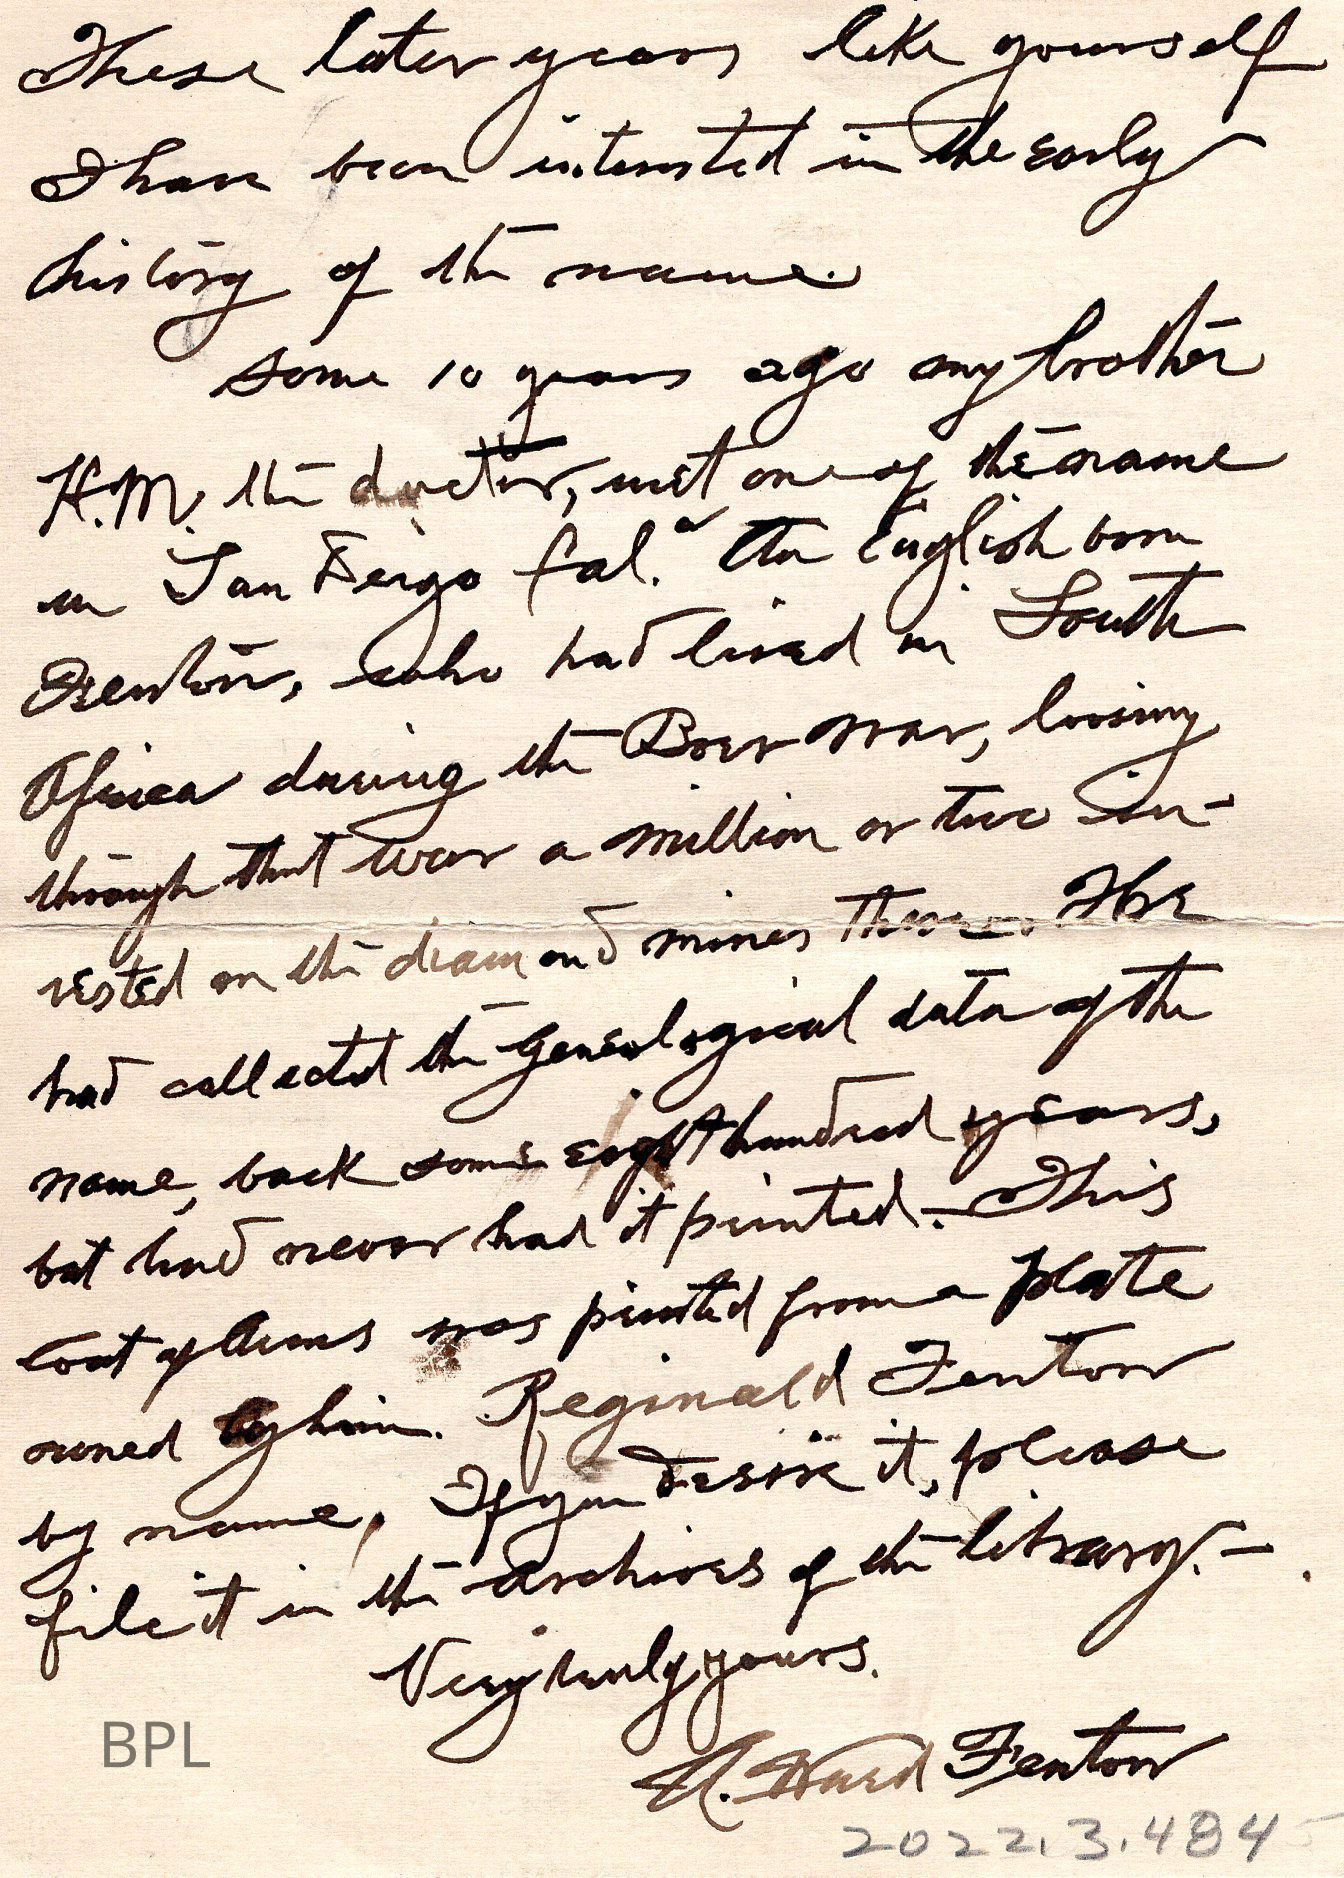 These later years like yourself
I have been interested in the early
history of the name.
Some 10 years ago my brother
H.M. the doctor, met one of the name
in San Deigo Cal. An English born
Fenton, who had lived in South
Africa during the Boer war, loosing
through that war a million or two in-
vested in the diamond mines there. He
had collected the geneological data of the
name, back some eight hundred years,
but had never had it printed. This
Coat of Arms was printed from a plate
owned by him. Reginald Fenton
by name. If you desire it, please
file it in the archives of the library. —
Very truly yours.
Ward Fenton
BPL
2022.3.484